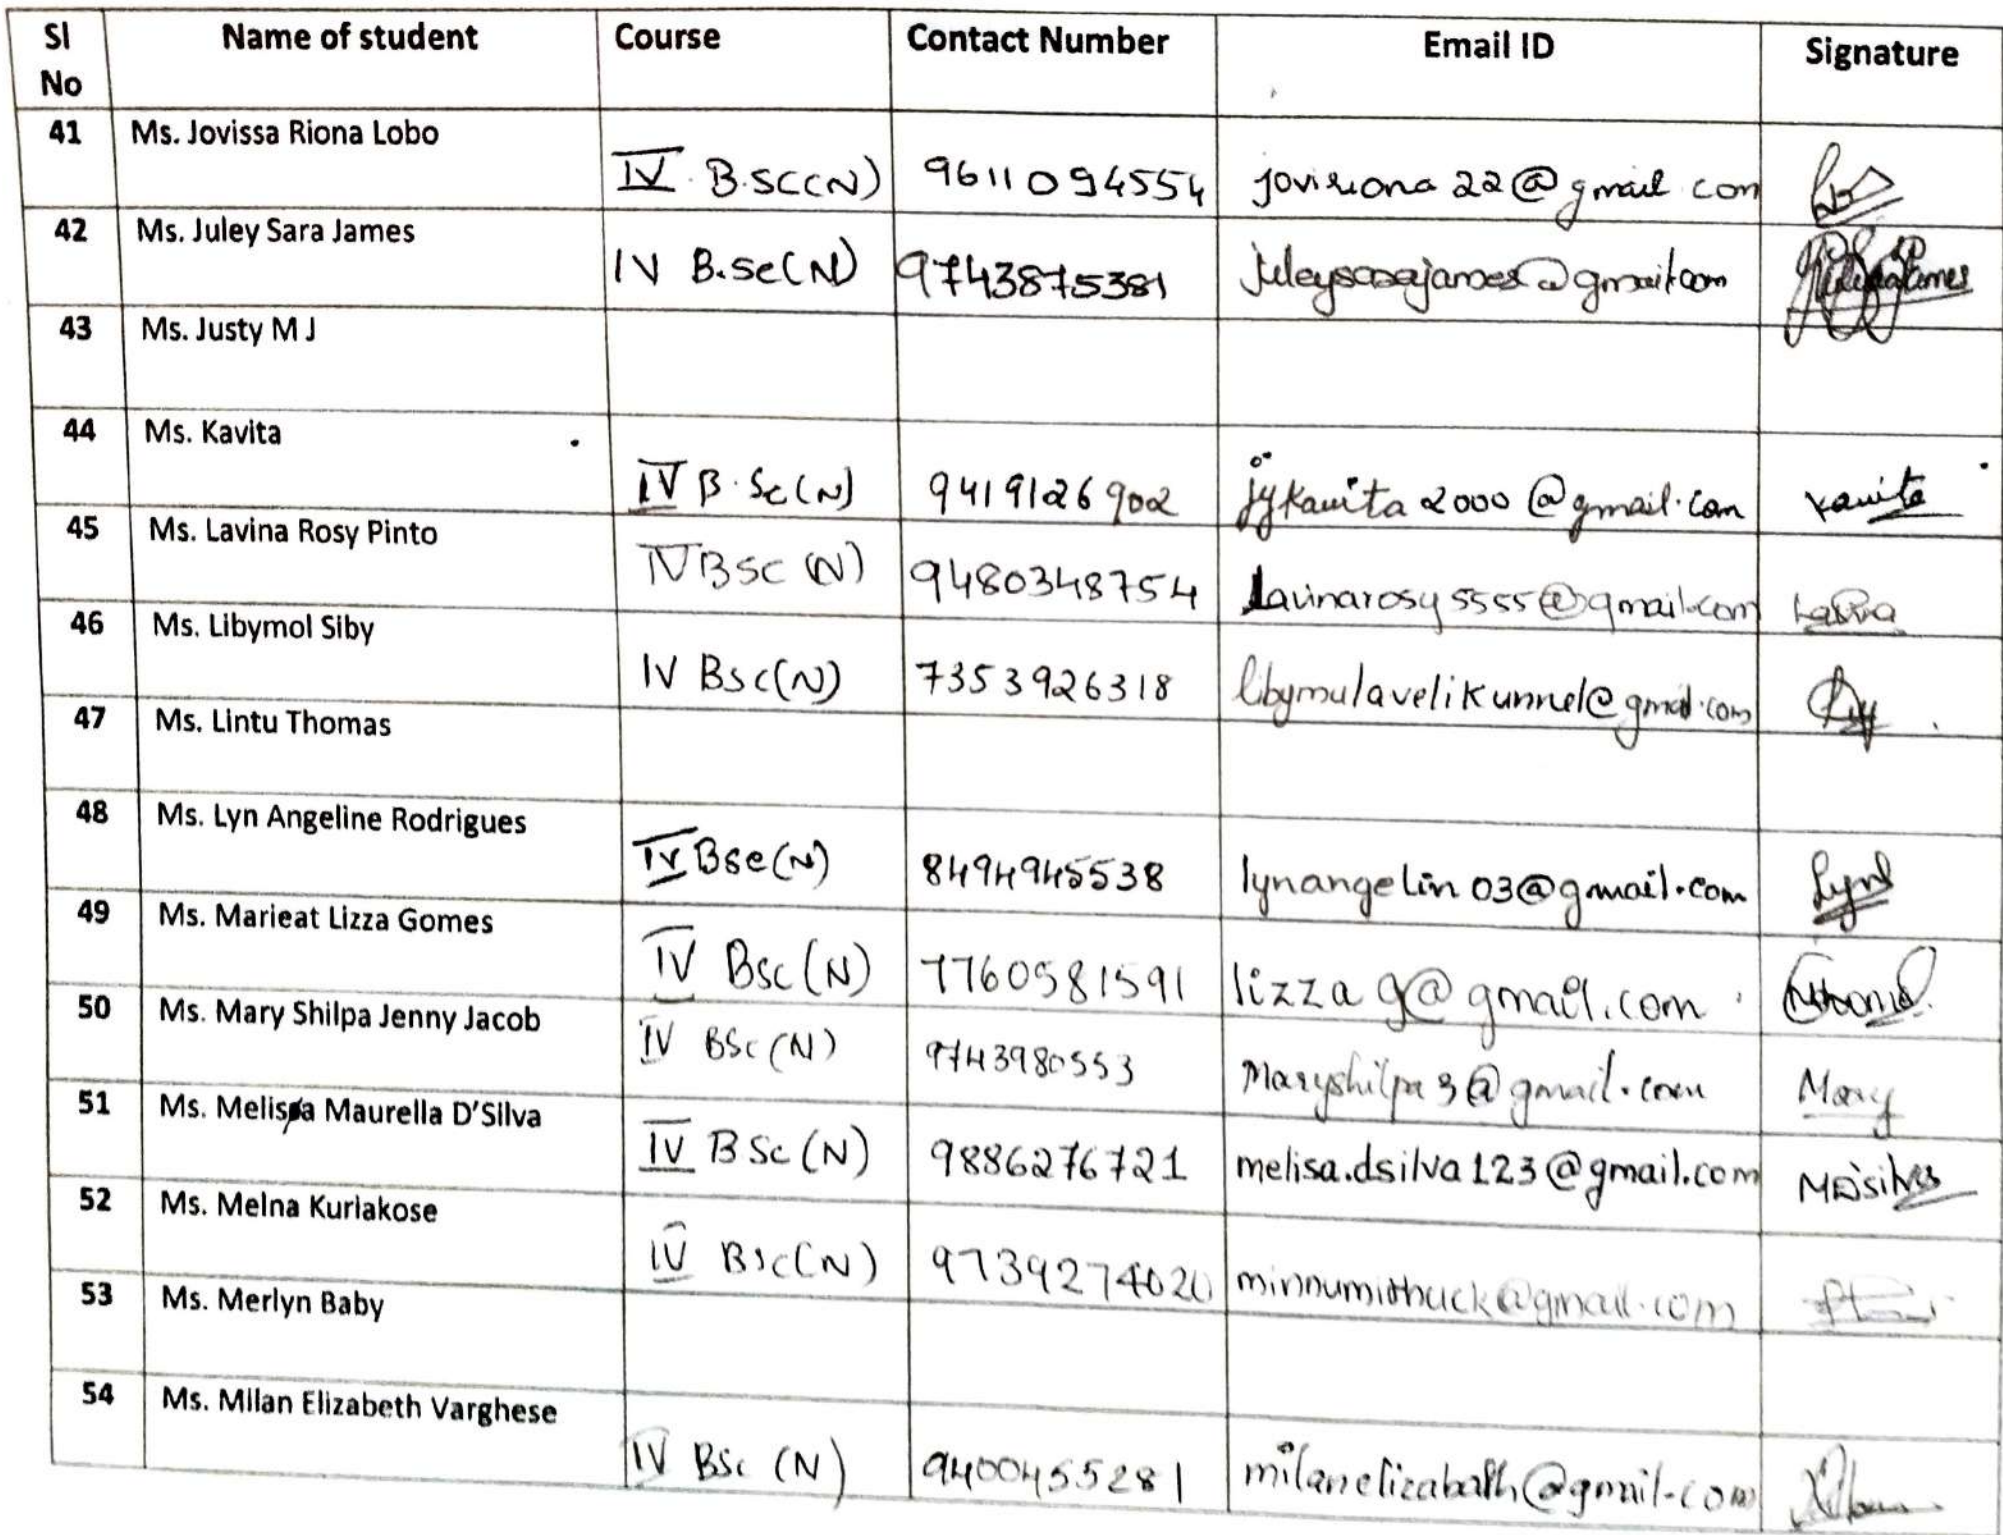 Sl No Name of student Course Contact Number Email ID Signature
41 Ms. Jovissa Riona Lobo IV B.SC(N) 9611094554 joviriona22@gmail.com
42 Ms. Juley Sara James IV B.Sc(N) 9743875381 juleysarajames@gmail.com
43 Ms. Justy M J
44 Ms. Kavita IV B.Sc(N) 9419126902 jykavita2000@gmail.com Kavita
45 Ms. Lavina Rosy Pinto IV BSC (N) 9480348754 lavinarosy5555@gmail.com
46 Ms. Libymol Siby IV Bsc(N) 7353926318 libymulavelikunnel@gmail.com
47 Ms. Lintu Thomas
48 Ms. Lyn Angeline Rodrigues IV Bsc(N) 8494945538 lynangelin03@gmail.com
49 Ms. Marieat Lizza Gomes IV Bsc(N) 7760581591 lizzag@gmail.com
50 Ms. Mary Shilpa Jenny Jacob IV BSc(N) 9743980553 Maryshilpa3@gmail.com Mary
51 Ms. Melisa Maurella D'Silva IV BSc(N) 9886276721 melisa.dsilva123@gmail.com MDsilva
52 Ms. Melna Kuriakose IV Bsc(N) 9739274020 @gmail.com
53 Ms. Merlyn Baby
54 Ms. Milan Elizabeth Varghese IV BSc (N) 9400455281 @gmail.com